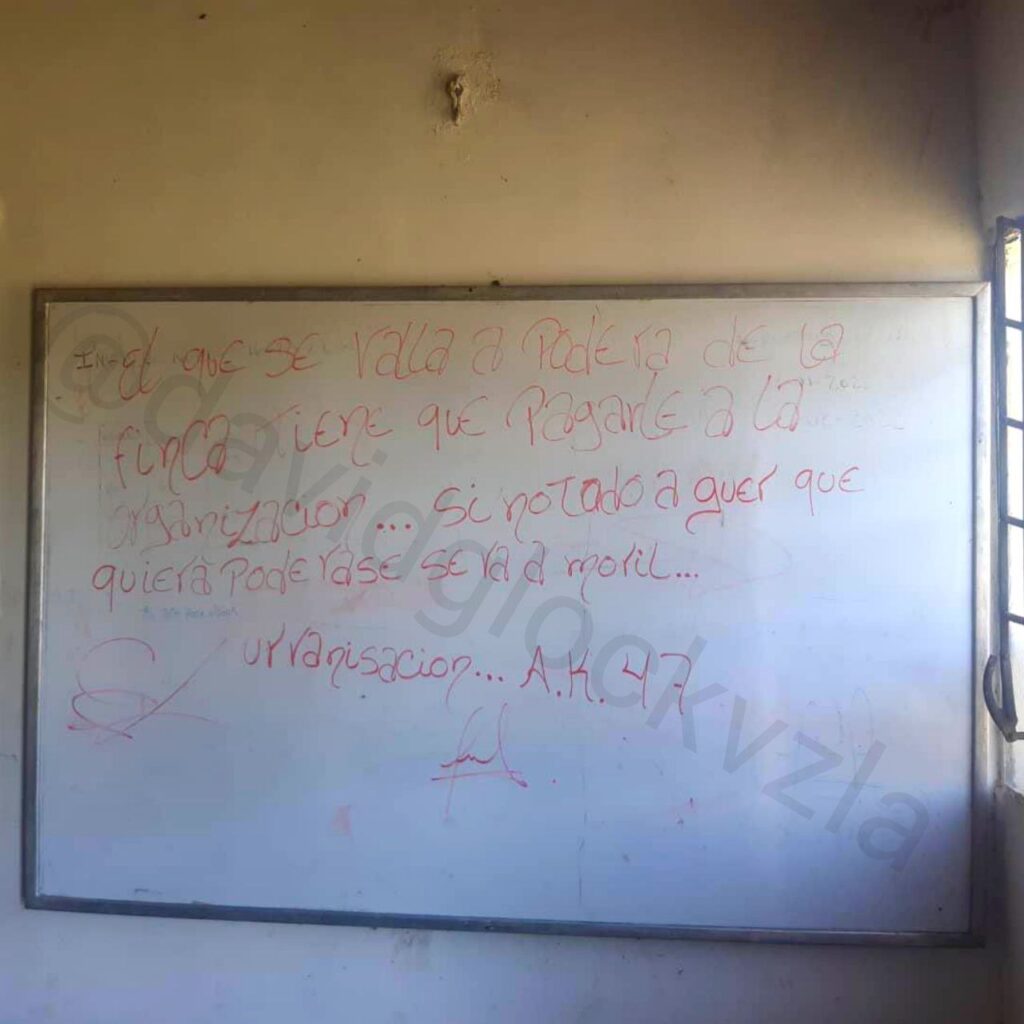 el que se valla a podera de la
finca tiene que pagarle a la
organizacion... si no todo a quer que
quiera poderase se va a moril...
urvanisacion... A.K.47
@davidglockvzla